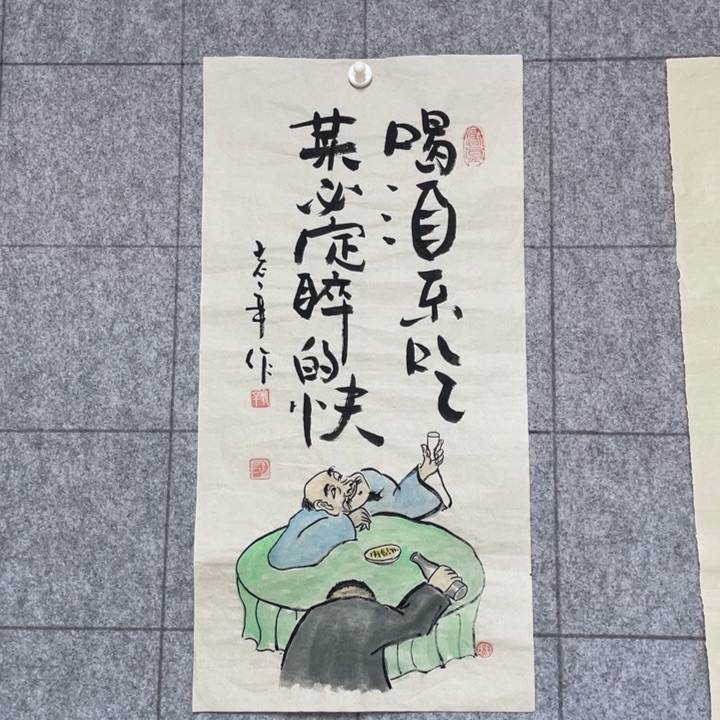 喝酒不吃
菜必定醉的快
老辛作